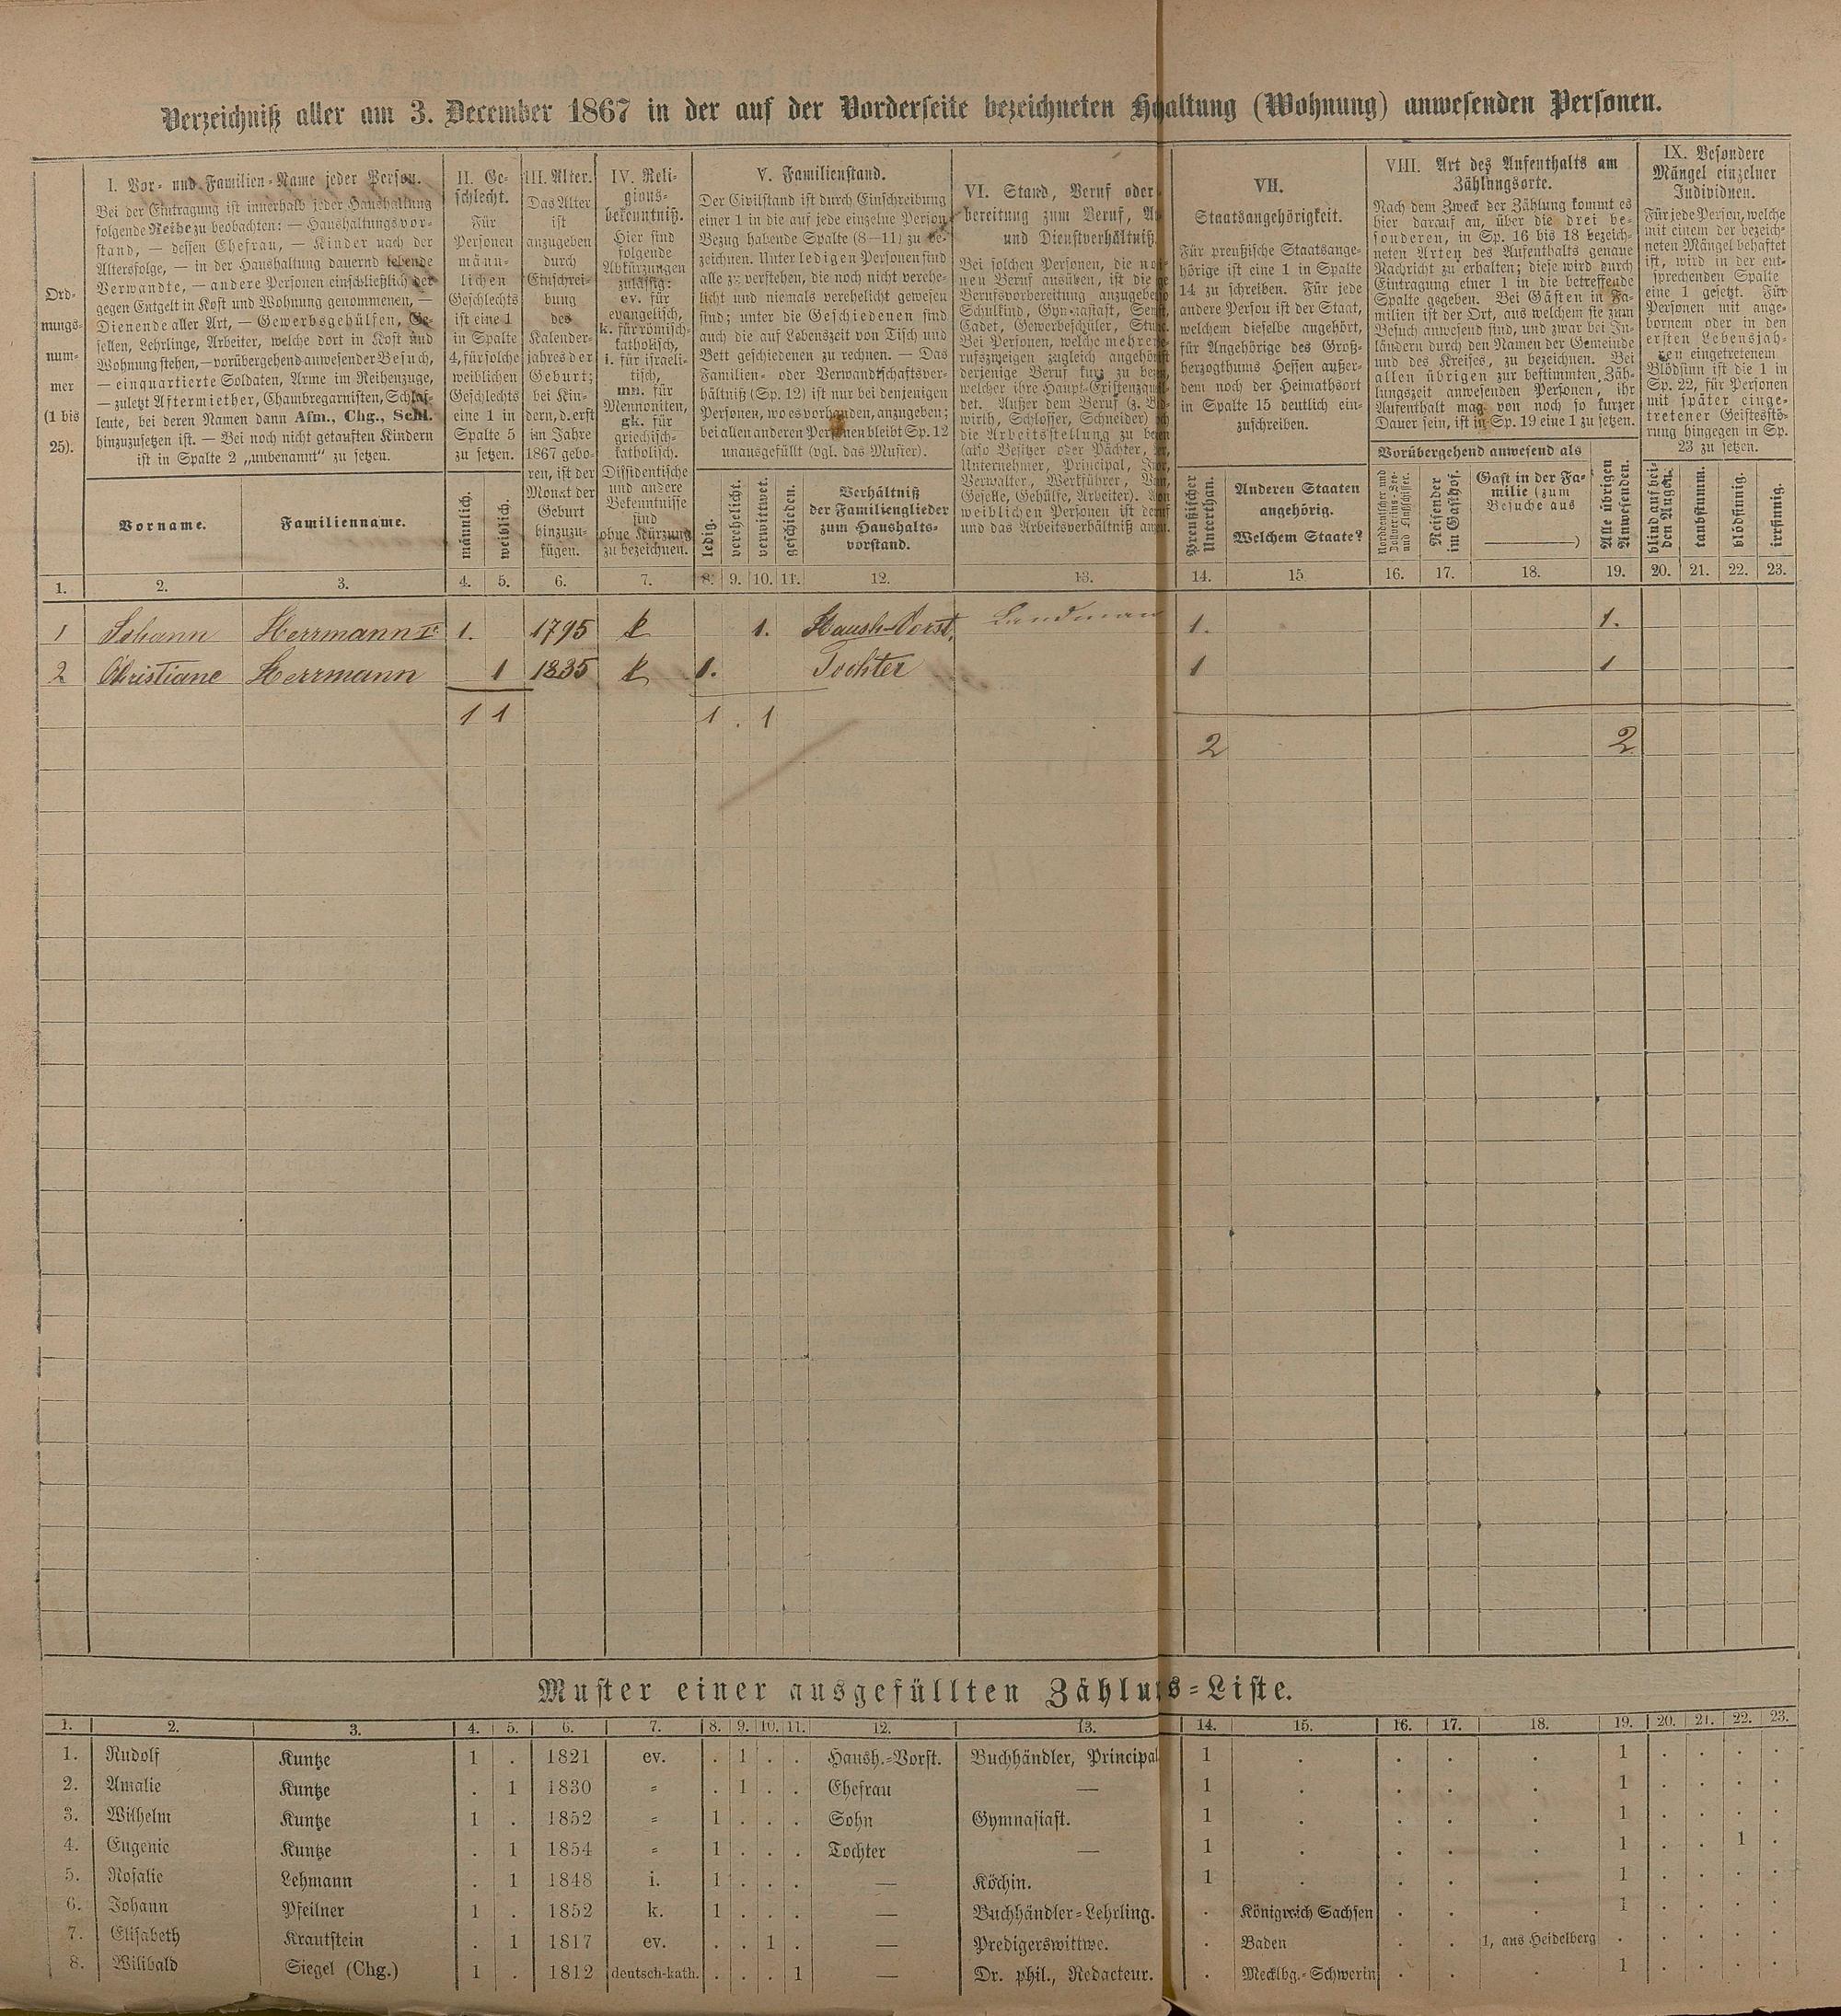 Verzeichniß aller am 3. December 1867 in der auf der Vorderseite bezeichneten H haltung (Wohnung) anwesenden Personen.
Ord-
nungs-
num-
mer
(1 bis
25).
I. Vor- und Familien-Name jeder Person.
Bei der Eintragung ist innerhalb jeder Haushaltung
folgende Reihe zu beobachten: — Haushaltungsvor-
stand, — dessen Ehefrau, — Kinder nach der
Altersfolge, — in der Haushaltung dauernd lebende
Verwandte, — andere Personen einschließlich der
gegen Entgelt in Kost und Wohnung genommenen, —
Dienende aller Art, — Gewerbsgehülfen, Ge-
sellen, Lehrlinge, Arbeiter, welche dort in Kost und
Wohnung stehen, — vorübergehend anwesender Besuch,
— einquartierte Soldaten, Arme im Reihenzuge,
— zuletzt Aftermiether, Chambregarnisten, Schlaf-
leute, bei deren Namen dann Afm., Chg., Schl.
hinzuzusetzen ist. — Bei noch nicht getauften Kindern
ist in Spalte 2 „unbenannt" zu setzen.
Vorname. Familienname.
II. Ge-
schlecht.
Für
Personen
männ-
lichen
Geschlechts
ist eine 1
in Spalte
4, für solche
weiblichen
Geschlechts
eine 1 in
Spalte 5
zu setzen.
männlich. weiblich.
III. Alter.
Das Alter
ist
anzugeben
durch
Einschrei-
bung
des
Kalender-
jahres der
Geburt;
bei Kin-
dern, d. erst
im Jahre
1867 gebo-
ren, ist der
Monat der
Geburt
hinzuzu-
fügen.
IV. Reli-
gions-
bekenntniß.
Hier sind
folgende
Abkürzungen
zulässig:
ev. für
evangelisch,
k. für römisch-
katholisch,
i. für israeli-
tisch,
mn. für
Mennoniten,
gk. für
griechisch-
katholisch.
Dissidentische
und andere
Bekenntnisse
sind
ohne Kürzung
zu bezeichnen.
V. Familienstand.
Der Civilstand ist durch Einschreibung
einer 1 in die auf jede einzelne Person
Bezug habende Spalte (8—11) zu be-
zeichnen. Unter ledigen Personen sind
alle zu verstehen, die noch nicht verehe-
licht und niemals verehelicht gewesen
sind; unter die Geschiedenen sind
auch die auf Lebenszeit von Tisch und
Bett geschiedenen zu rechnen. — Das
Familien- oder Verwandtschaftsver-
hältniß (Sp. 12) ist nur bei denjenigen
Personen, wo es vorhanden, anzugeben;
bei allen anderen Personen bleibt Sp. 12
unausgefüllt (vgl. das Muster).
ledig. verehelicht. verwittwet. geschieden.
Verhältniß
der Familienglieder
zum Haushalts-
vorstand.
VI. Stand, Beruf oder
bereitung zum Beruf,
und Dienstverhältniß.
Bei solchen Personen, die
nen Beruf ausüben, ist die
Berufsvorbereitung
Schulkind, Gymnasiast,
Cadet, Gewerbeschüler,
Bei Personen, welche mehrere
rufszweigen zugleich
derjenige Beruf kurz zu
welcher ihre
det. Außer dem Beruf (z. B.
wirth, Schlosser, Schneider)
die Arbeitsstellung zu
(also Besitzer oder Pächter,
Unternehmer, Principal,
Verwalter, Werkführer,
Geselle, Gehülfe, Arbeiter).
weiblichen Personen ist
und das Arbeitsverhältniß
VII.
Staatsangehörigkeit.
Für preußische Staatsange-
hörige ist eine 1 in Spalte
14 zu schreiben. Für jede
andere Person ist der Staat,
welchem dieselbe angehört,
für Angehörige des Groß-
herzogthums Hessen außer-
dem noch der Heimathsort
in Spalte 15 deutlich ein-
zuschreiben.
Preußischer
Unterthan.
Anderen Staaten
angehörig.
Welchem Staate?
VIII. Art des Aufenthalts am
Zählungsorte.
Nach dem Zweck der Zählung kommt es
hier darauf an, über die drei be-
sonderen, in Sp. 16 bis 18 bezeich-
neten Arten des Aufenthalts genaue
Nachricht zu erhalten; diese wird durch
Eintragung einer 1 in die betreffende
Spalte gegeben. Bei Gästen in Fa-
milien ist der Ort, aus welchem sie zum
Besuch anwesend sind, und zwar bei In-
ländern durch den Namen der Gemeinde
und des Kreises, zu bezeichnen. Bei
allen übrigen zur bestimmten Zäh-
lungszeit anwesenden Personen, ihr
Aufenthalt mag von noch so kurzer
Dauer sein, ist in Sp. 19 eine 1 zu setzen.
Vorübergehend anwesend als
Norddeutscher und
Zollvereins-See-
und Flußschiffer.
Reisender
im Gasthof.
Gast in der Fa-
milie (zum
Besuche aus
———)
Alle übrigen
Anwesenden.
IX. Besondere
Mängel einzelner
Individuen.
Für jede Person, welche
mit einem der bezeich-
neten Mängel behaftet
ist, wird in der ent-
sprechenden Spalte
eine 1 gesetzt. Für
Personen mit ange-
bornem oder in den
ersten Lebensjah-
ren eingetretenem
Blödsinn ist die 1 in
Sp. 22, für Personen
mit später einge-
tretener Geistesstö-
rung hingegen in Sp.
23 zu setzen.
blind auf bei-
den Augen.
taubstumm.
blödsinnig.
irrsinnig.
1. 2. 3. 4. 5. 6. 7. 8. 9. 10. 11. 12. 13. 14. 15 16. 17. 18. 19. 20. 21. 22. 23.
1 Johann Herrmann I. 1. 1795 k 1. Haush-Vorst. Landman 1. 1.
2 Christiane Herrmann 1 1835 k 1. Tochter 1 1
1 1 1 . 1
2 2
Muster einer ausgefüllten Zählu s-Liste.
1. 2. 3. 4. 5. 6. 7. 8. 9. 10. 11. 12. 13. 14. 15. 16. 17. 18. 19. 20. 21. 22. 23.
1. Rudolf Kuntze 1 . 1821 ev. . 1 . . Haush.-Vorst. Buchhändler, Principal 1 . . . . 1 . . . .
2. Amalie Kuntze . 1 1830 = . 1 . . Ehefrau — 1 . . . . 1 . . . .
3. Wilhelm Kuntze 1 . 1852 = 1 . . . Sohn Gymnasiast. 1 . . . . 1 . . . .
4. Eugenie Kuntze . 1 1854 = 1 . . . Tochter — 1 . . . . 1 . . 1 .
5. Rosalie Lehmann . 1 1848 i. 1 . . . — Köchin. 1 . . . . 1 . . . .
6. Johann Pfeilner 1 . 1852 k. 1 . . . — Buchhändler-Lehrling. . Königreich Sachsen . . . 1 . . . .
7. Elisabeth Krautstein . 1 1817 ev. . . 1 . — Predigerswittwe. . Baden . . 1, aus Heidelberg . . . . .
8. Wilibald Siegel (Chg.) 1 . 1812 deutsch-kath. . . . 1 — Dr. phil., Redacteur. . Mecklbg.-Schwerin . . . 1 . . . .